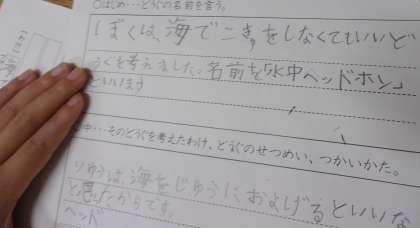 ○はじめ…どうぐの名前を言う。
ぼくは、海でこきゅうをしなくてもいいど
うぐを考えました。名前を「水中ヘッドホン」
といいます
中…そのどうぐを考えたわけ、どうぐのせつめい、つかいかた。
りゆうは、海をじゆうにおよげるといいな
と思ったからです。
ヘッド